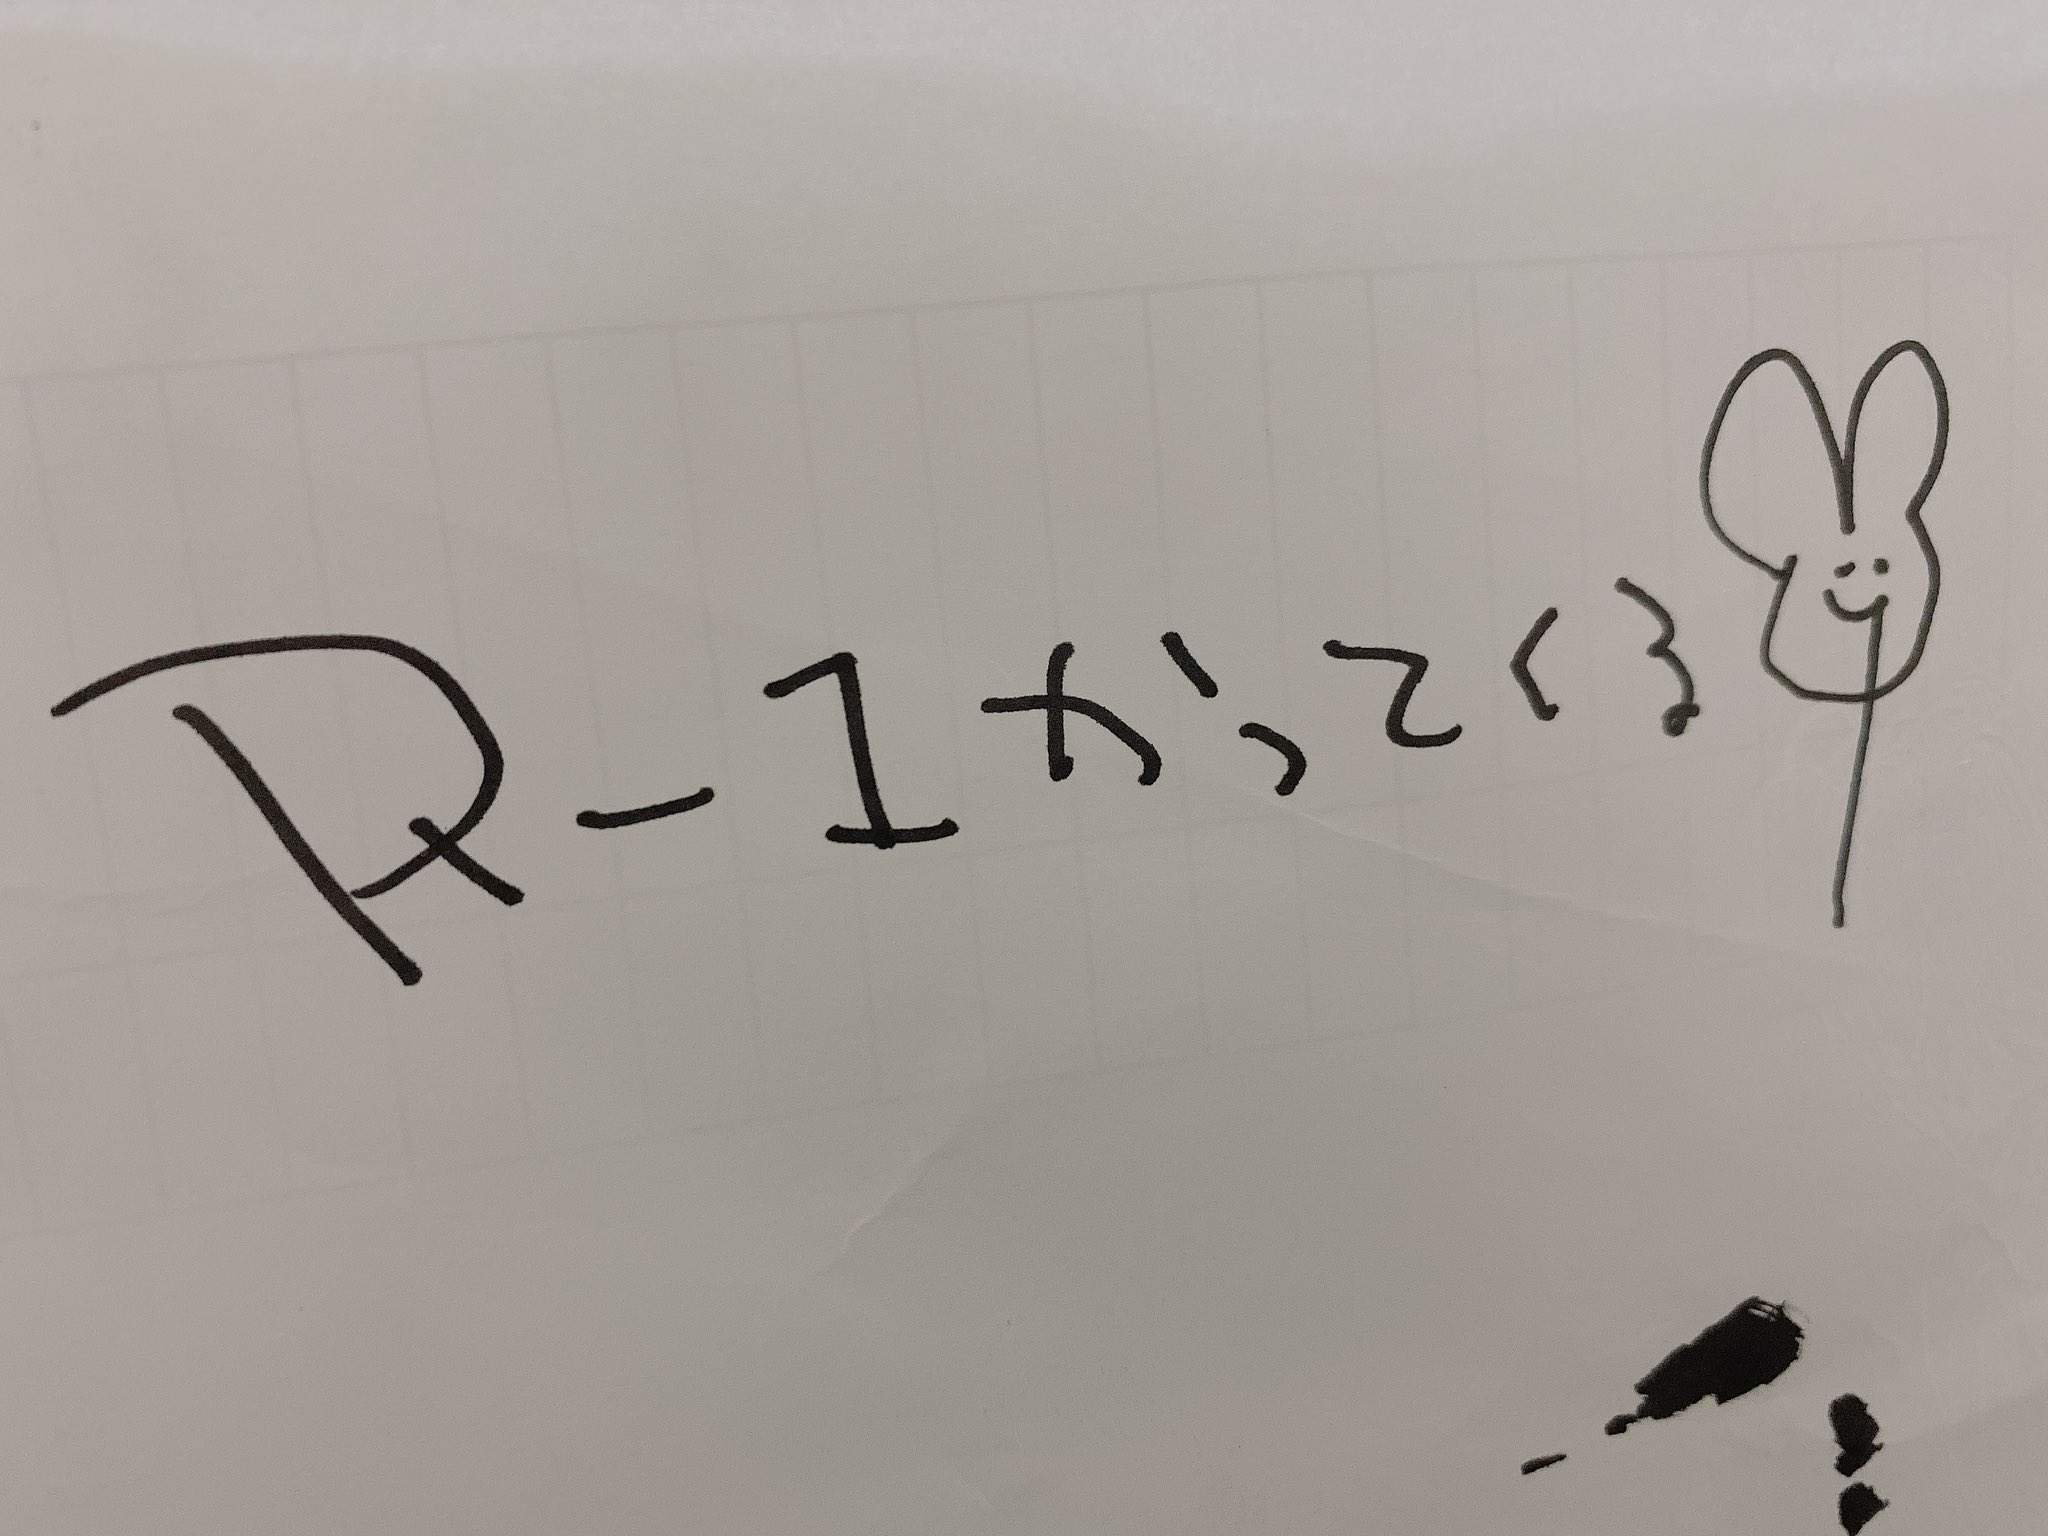 R-1かってくる